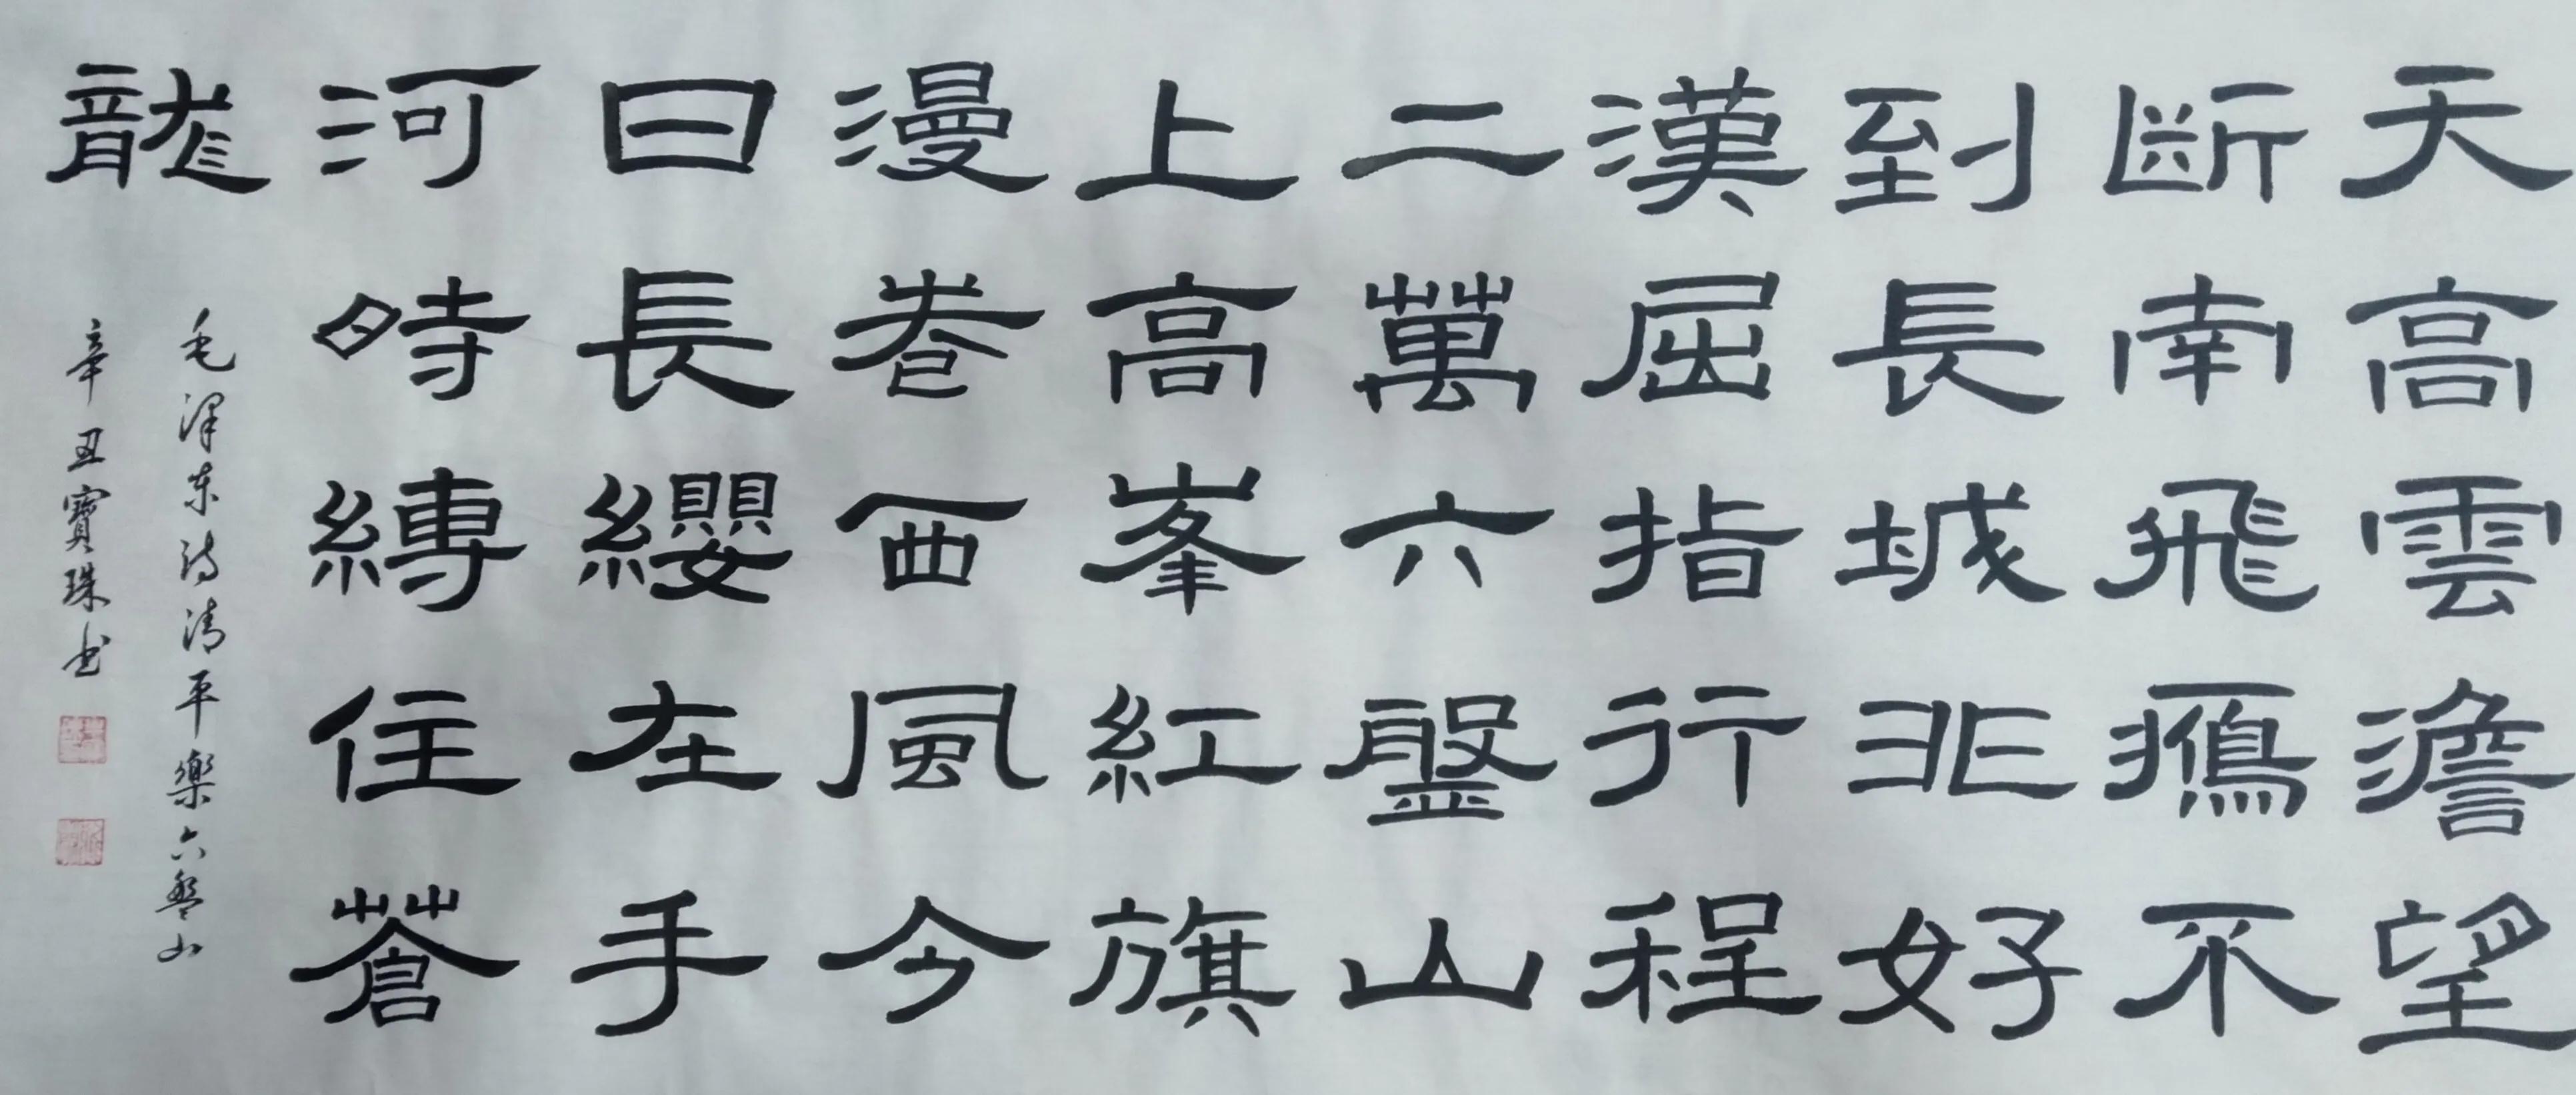 天高雲澹望
断南飛鴈不
到長城非好
漢屈指行程
二萬六盤山
上高峯紅旗
漫卷西風今
日長纓在手
河時縛住蒼
龍
毛澤东詩清平樂六盤山
辛丑寶珠书